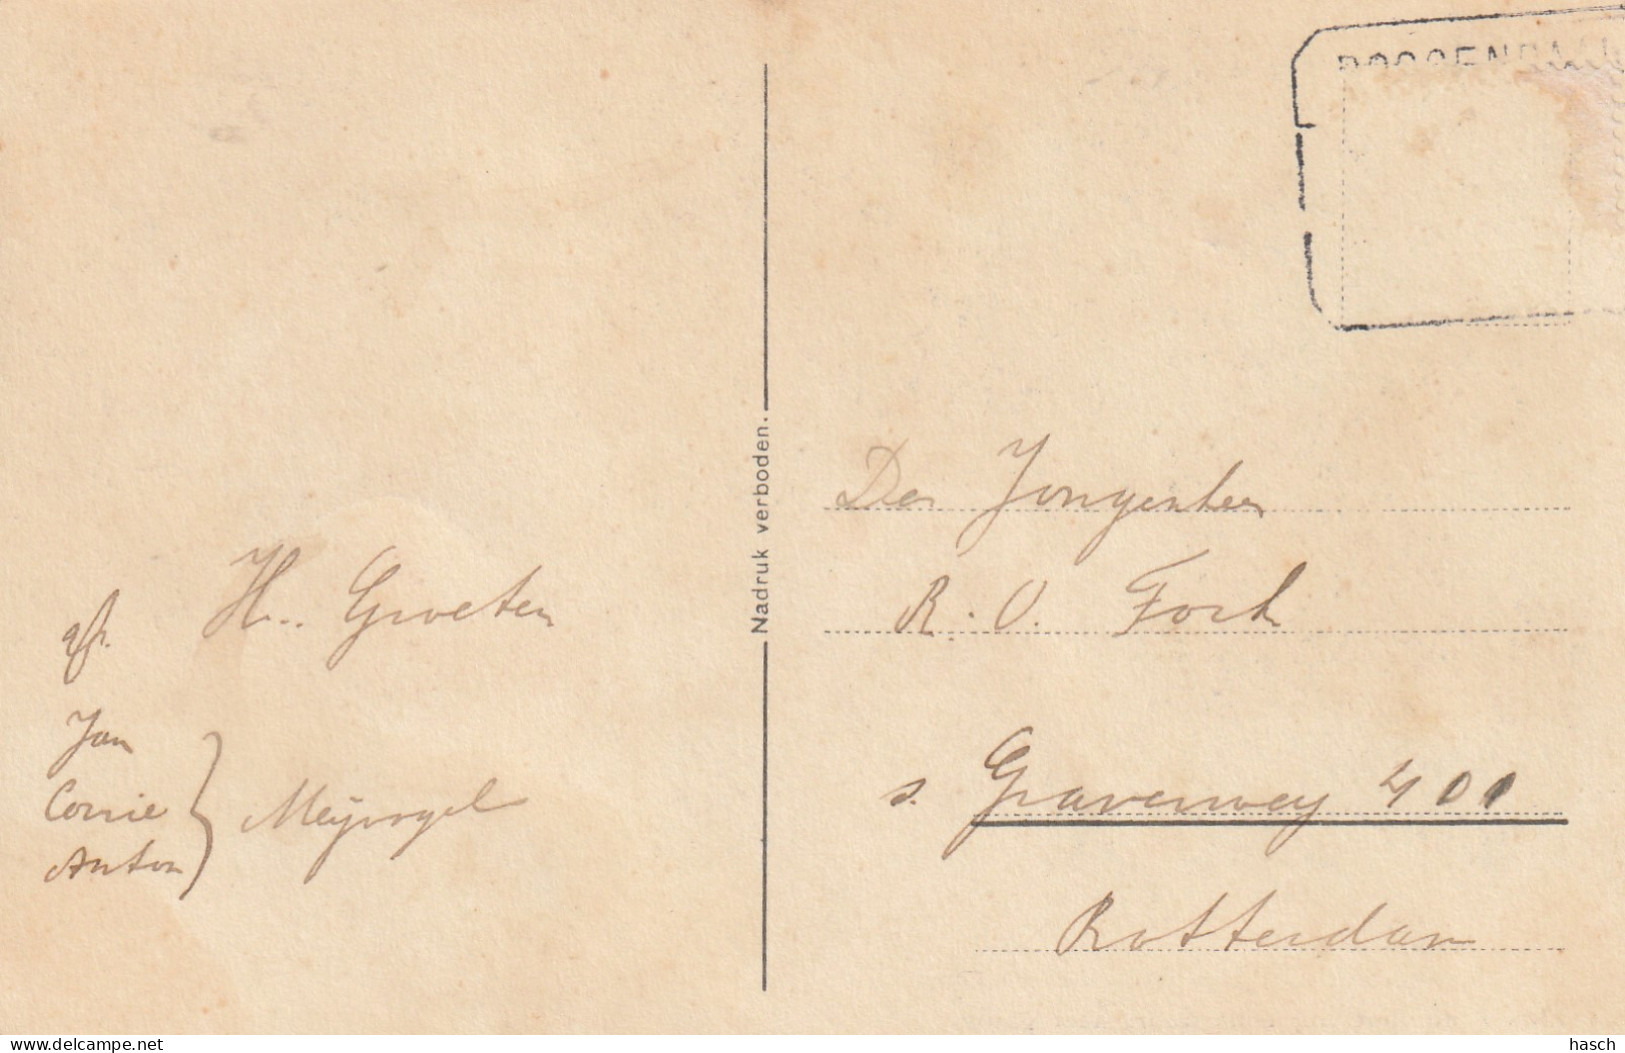 ROOSENDAAL
Nadruk verboden.
Den Jongenheer
R. V. Fock
s. Gravenweg 401
Rotterdam
H.. Groeten
afz.
Jan
Corrie
Anton
delcampe.net
hasch